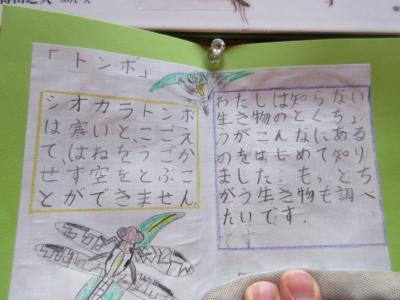 「トンボ」
シオカラトンボ
は寒いと、こごえ
て、はねをうごか
せず空をとぶこ
とができません
わたしは知らない
生き物のとくちょ
うがこんなにある
のをはじめて知り
ました。もっとち
がう生き物も調べ
たいです。